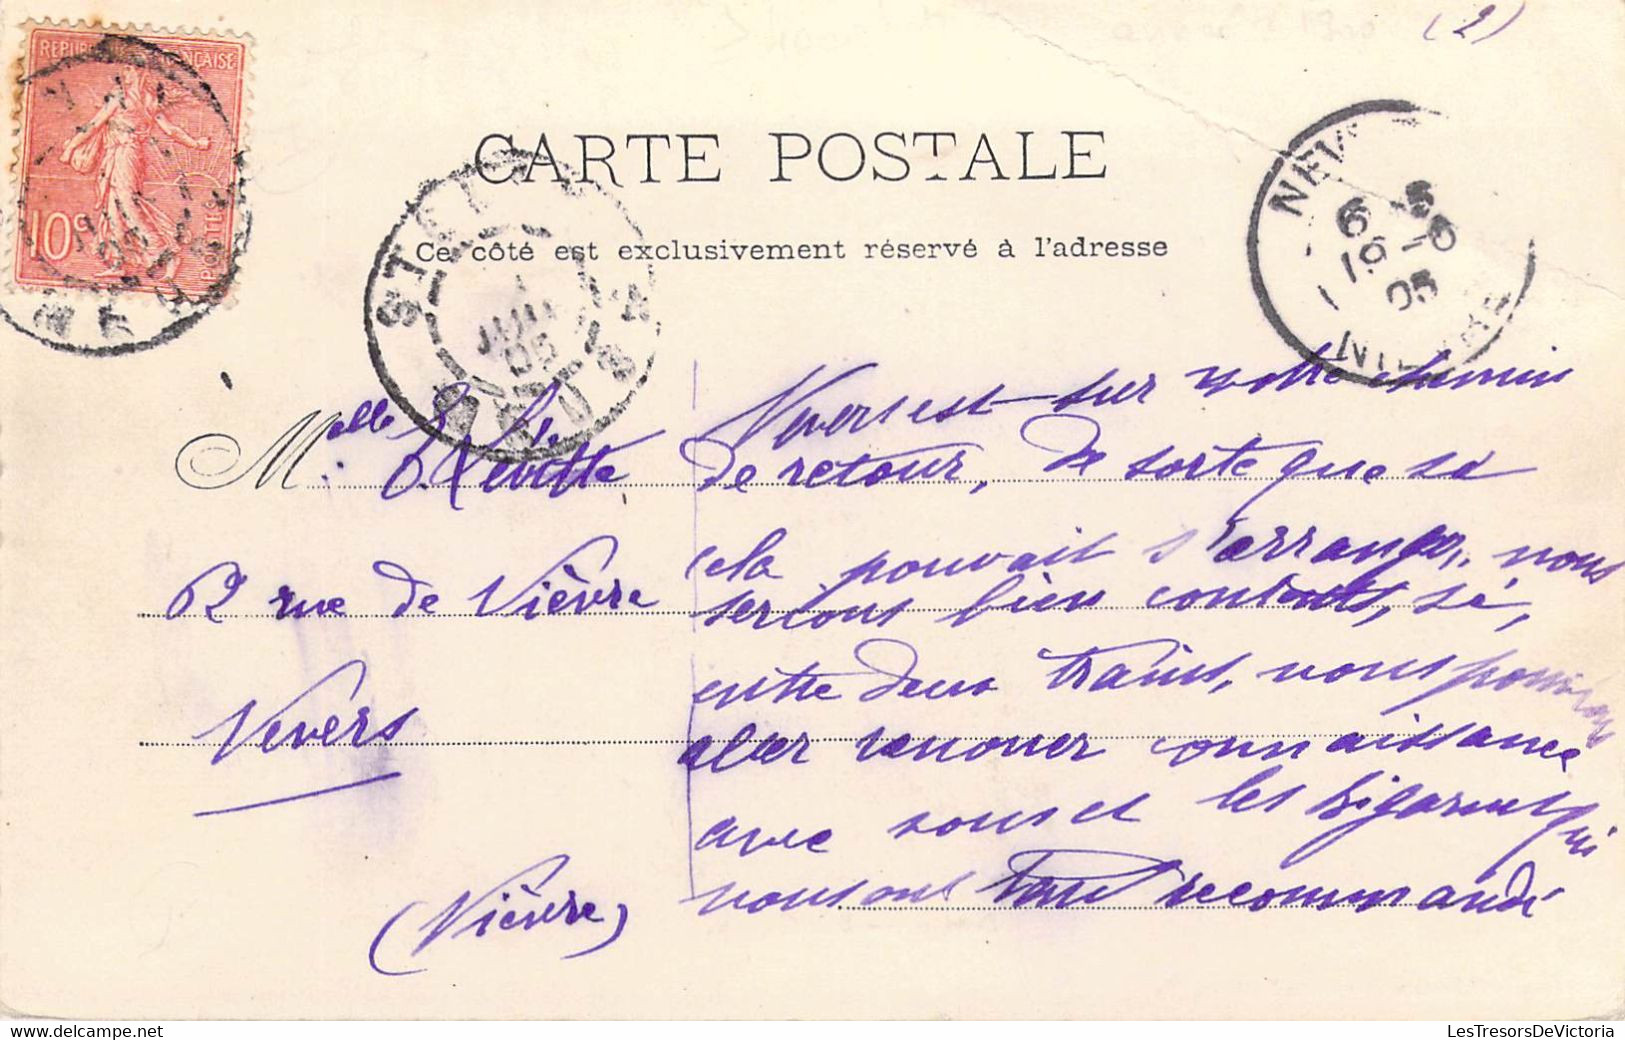 (2)
REPUBLIQUE FRANÇAISE
10c
POSTES
CARTE POSTALE
Ce côté est exclusivement réservé à l'adresse
NEV
6 5
19-6
05
NIEVRE
JUIN
05
Melle Lévitte
62 rue de Nièvre
Nevers
(Nièvre)
Nevers est sur votre chemin
de retour, de sorte que si
cela pouvait s'arranger, nous
serions bien contents, si,
entre deux trains, vous pouviez
aller renouer connaissance
avec nous et les bigarreaux qui
nous ont tant recommandé
LesTresorsDeVictoria